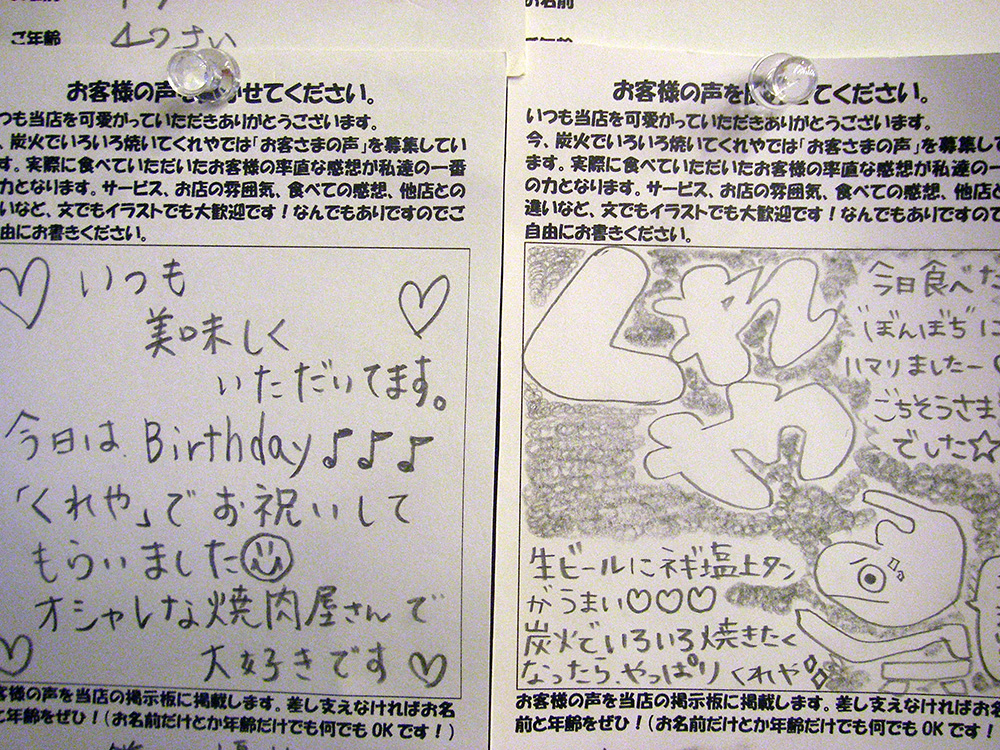 ご年齢
お名前
お客様の声を かせてください。
つも当店を可愛がっていただきありがとうございます。
、炭火でいろいろ焼いてくれやでは「お客さまの声」を募集してい
す。実際に食べていただいたお客様の率直な感想が私達の一番
力となります。サービス、お店の雰囲気、食べての感想、他店との
いなど、文でもイラストでも大歓迎です！なんでもありですのでご
由にお書きください。
いつも
美味しく
いただいてます。
今日は Birthday♪♪♪
「くれや」でお祝いして
もらいました
オシャレな焼肉屋さんで
大好きです♡
客様の声を当店の掲示板に掲載します。差し支えなければお名
と年齢をぜひ！（お名前だけとか年齢だけでも何でもOKです！）
お客様の声を せてください。
いつも当店を可愛がっていただきありがとうございます。
今、炭火でいろいろ焼いてくれやでは「お客さまの声」を募集して
ます。実際に食べていただいたお客様の率直な感想が私達の一
の力となります。サービス、お店の雰囲気、食べての感想、他店と
違いなど、文でもイラストでも大歓迎です！なんでもありですので
自由にお書きください。
くれや
今日食べた
"ぼんぼち"に
ハマりましたー
ごちそうさま
でした☆
生ビールにネギ塩上タン
がうまい♡♡♡
炭火でいろいろ焼きたく
なったら、やっぱりくれや
お客様の声を当店の掲示板に掲載します。差し支えなければお
前と年齢をぜひ！（お名前だけとか年齢だけでも何でもOKです！